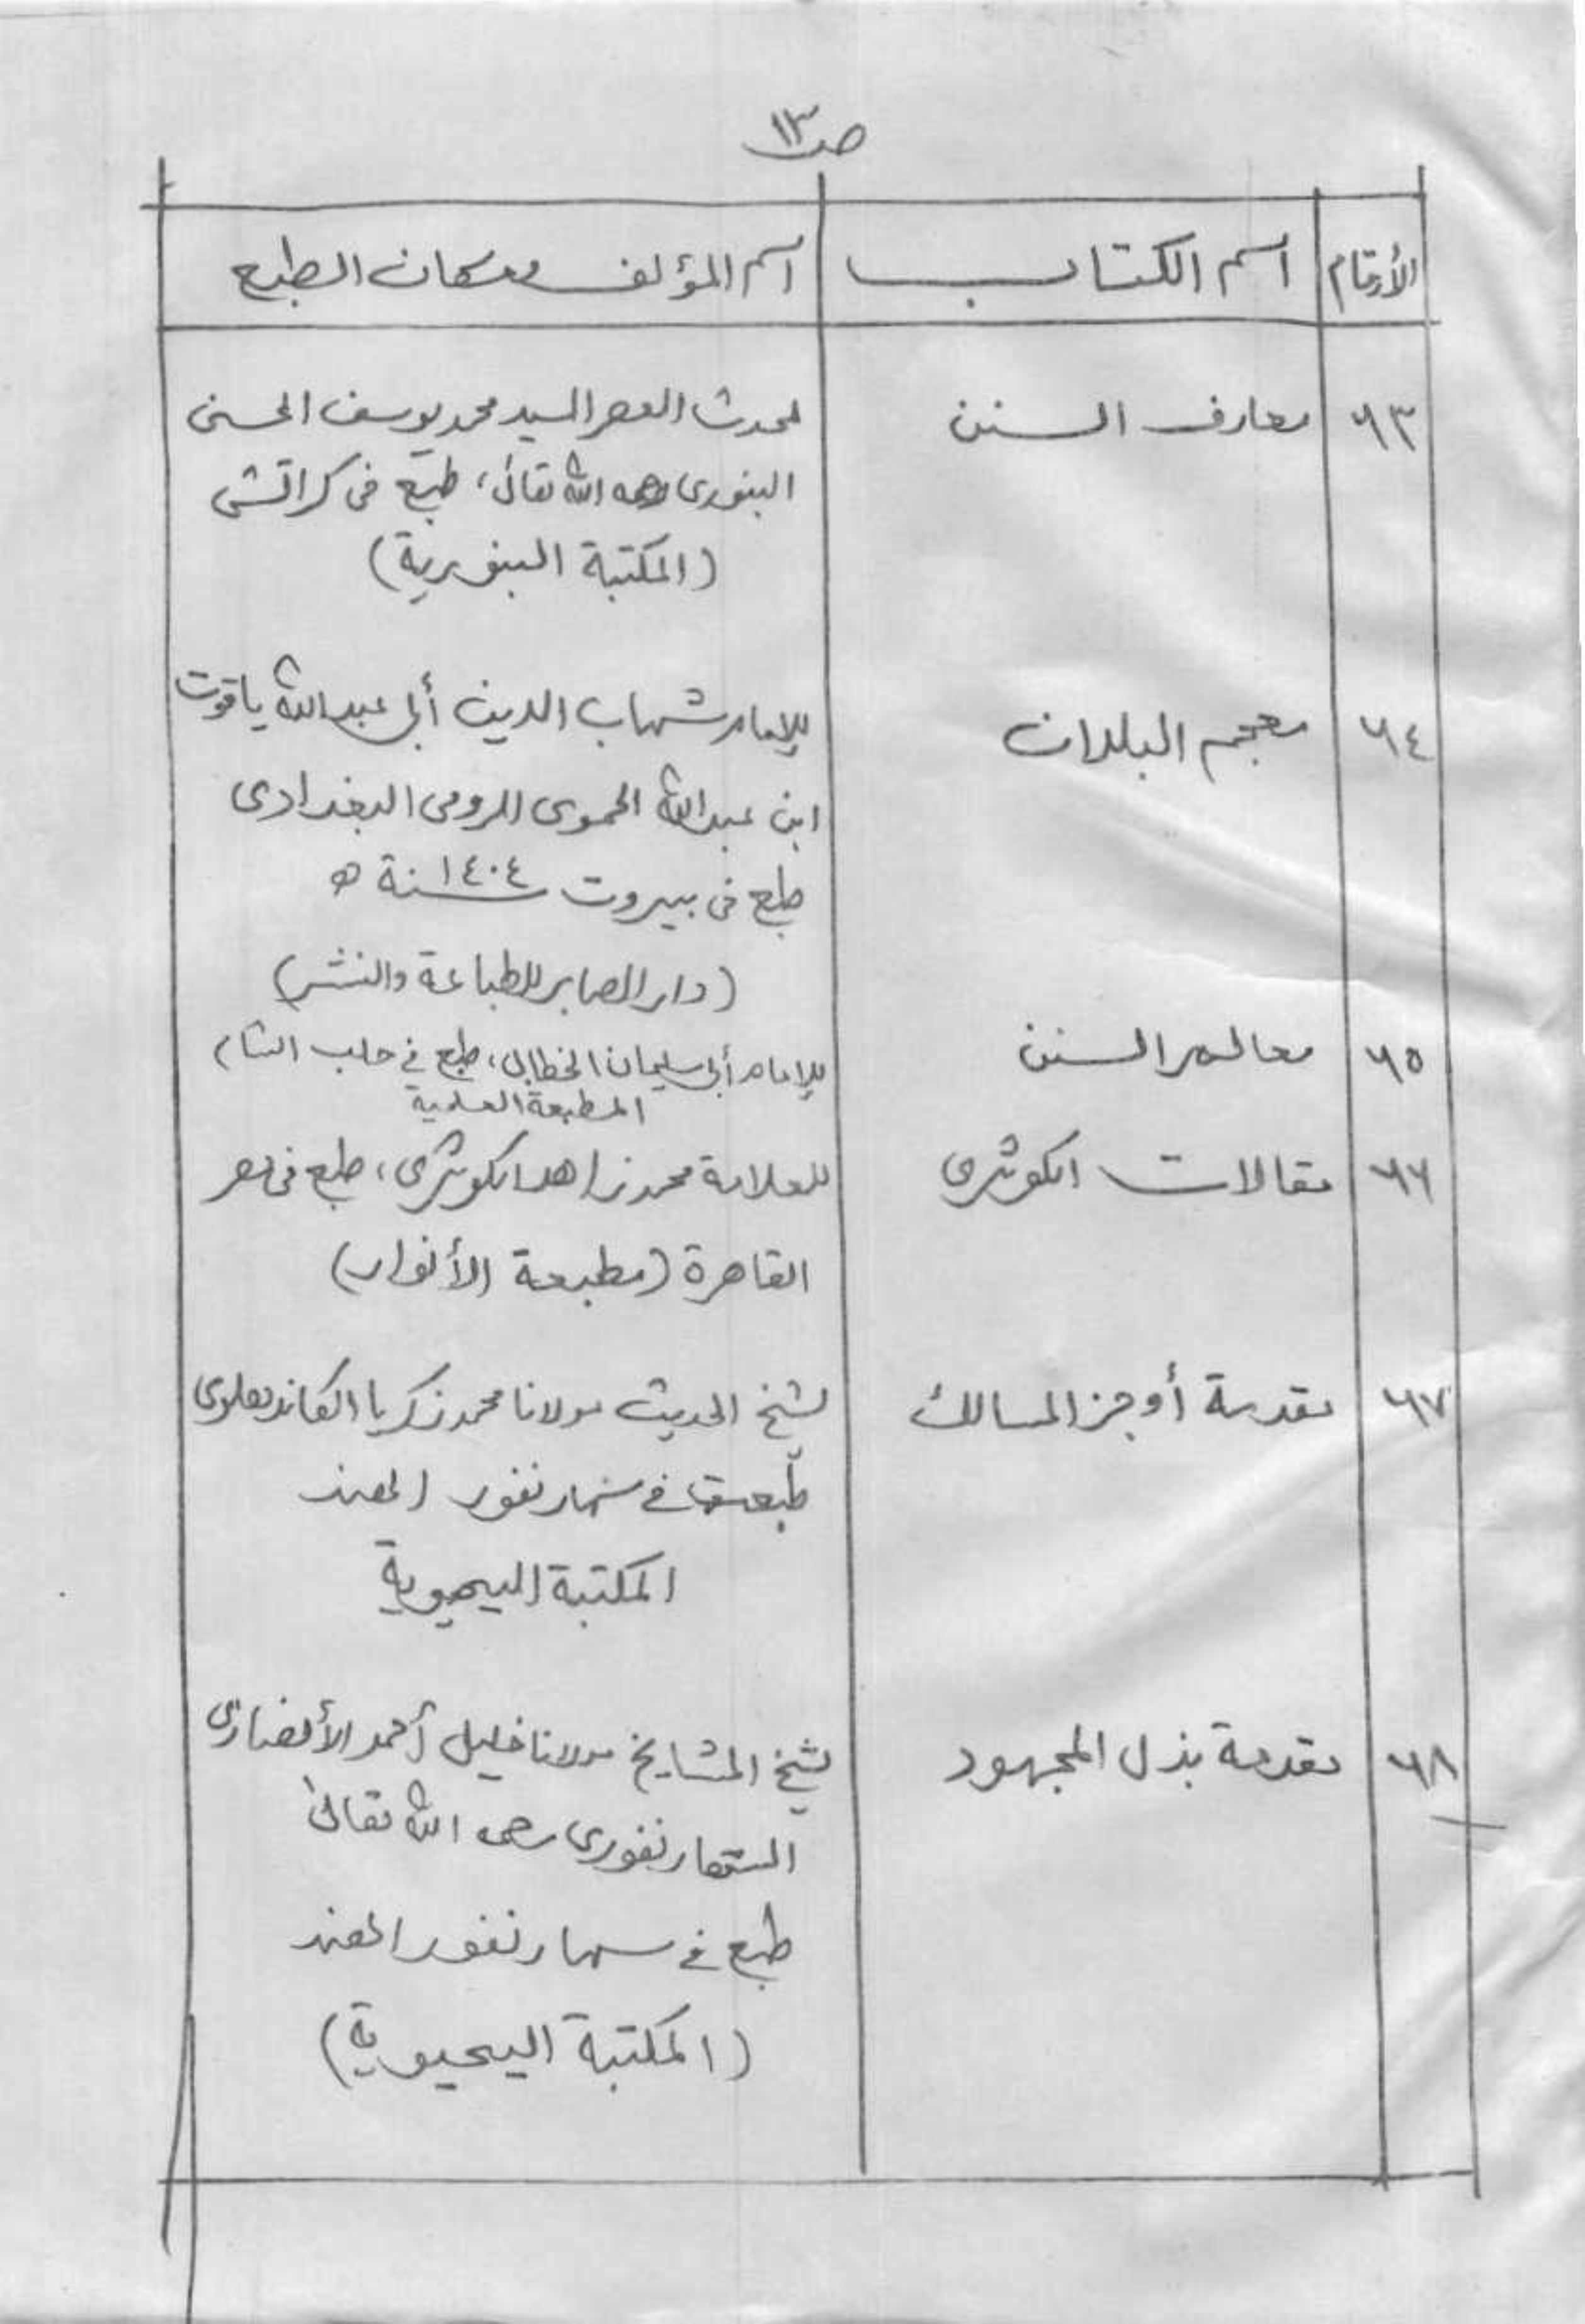 ص١٣
الأرقام اسم الكتاب اسم المؤلف ومكان الطبع
٦٣ معارف السنن لمحدث العصر السيد محمد يوسف الحسنى
البنورى رحمه الله تعالىٰ، طبع فى كراتشى
(المكتبة البنورية)
٦٤ معجم البلدان للإمام شهاب الدين أبى عبد الله ياقوت
ابن عبد الله الحموى الرومى البغدادى
طبع فى بيروت سنة ١٤٠٤ ه
(دار الصابر للطباعة والنشر)
٦٥ معالم السنن للإمام أبى سليمان الخطابى، طبع فى حلب الشام
المطبعة العلمية
٦٦ مقالات الكوثرى للعلامة محمد زاهد الكوثرى، طبع فى مصر
القاهرة (مطبعة الأنوار)
٦٧ مقدمة أوجز المسالك لشيخ الحديث مولانا محمد زكريا الكاندهلوى
طبعت فى سهارنفور الهند
المكتبة اليحيوية
٦٨ مقدمة بذل المجهود لشيخ المشايخ مولانا خليل أحمد الأنصارى
السهارنفورى رحمه الله تعالىٰ
طبع فى سهارنفور الهند
(المكتبة اليحيوية)